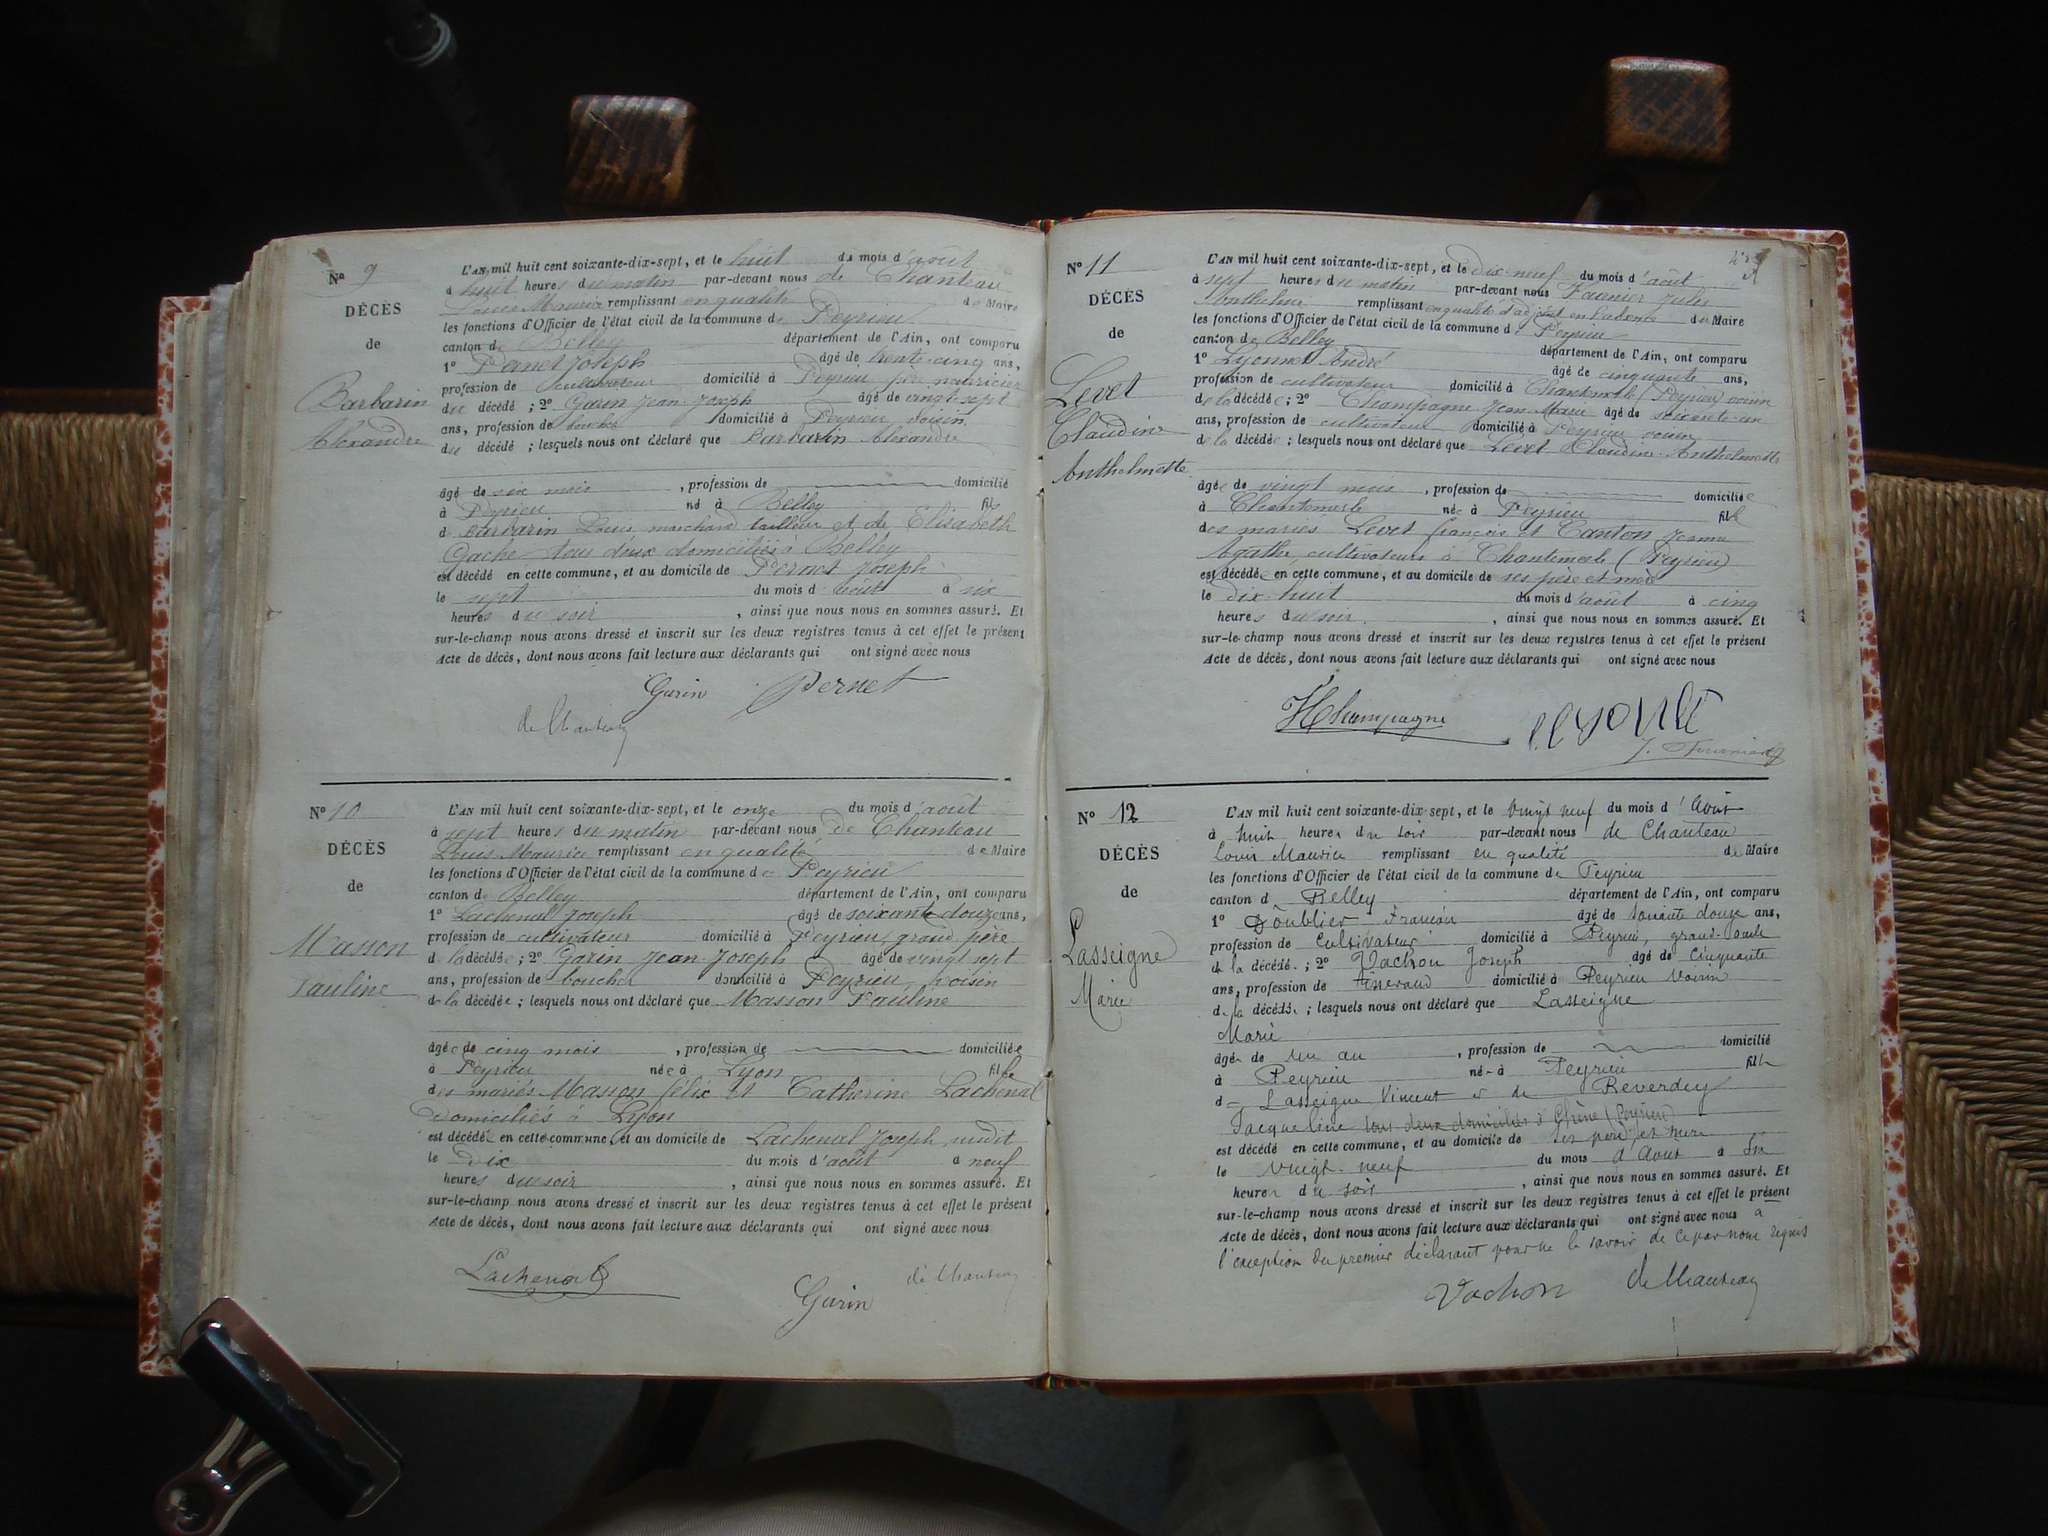 N° 9
DÉCÈS
de
Barbarin
Alexandre
L'AN mil huit cent soixante-dix-sept, et le huit du mois d'août
à huit heures du matin par-devant nous de Chanteau
Louis Maurice remplissant en qualité de Maire
les fonctions d'Officier de l'état civil de la commune de Peyrieu
canton de Belley département de l'Ain, ont comparu
1° Pernet Joseph âgé de trente-cinq ans,
profession de cultivateur domicilié à Peyrieu père nourricier
du décédé ; 2° Garin Jean-Joseph âgé de vingt-sept
ans, profession de boucher domicilié à Peyrieu voisin
du décédé ; lesquels nous ont déclaré que Barbarin Alexandre
âgé de six mois , profession de domicilié
à Peyrieu né à Belley fils
de Barbarin Louis marchand tailleur et de Elisabeth
Gache tous deux domiciliés à Belley
est décédé en cette commune, et au domicile de Pernet Joseph
le sept du mois d'août à six
heures du soir , ainsi que nous nous en sommes assuré. Et
sur-le-champ nous avons dressé et inscrit sur les deux registres tenus à cet effet le présent
Acte de décès, dont nous avons fait lecture aux déclarants qui ont signé avec nous
Garin Pernet
de Chanteau
N° 10
DÉCÈS
de
Masson
Pauline
L'AN mil huit cent soixante-dix-sept, et le onze du mois d'août
à sept heures du matin par-devant nous de Chanteau
Louis Maurice remplissant en qualité de Maire
les fonctions d'Officier de l'état civil de la commune de Peyrieu
canton de Belley département de l'Ain, ont comparu
1° Lachenal Joseph âgé de soixante douze ans,
profession de cultivateur domicilié à Peyrieu, grand père
de la décédée ; 2° Garin Jean-Joseph âgé de vingt sept
ans, profession de boucher domicilié à Peyrieu, voisin
de la décédée ; lesquels nous ont déclaré que Masson Pauline
âgée de cinq mois , profession de domiciliée
à Peyrieu née à Lyon fille
des mariés Masson félix et Catherine Lachenal
domiciliés à Lyon
est décédée en cette commune, et au domicile de Lachenal Joseph, susdit
le dix du mois d'août à neuf
heures du soir , ainsi que nous nous en sommes assuré. Et
sur-le-champ nous avons dressé et inscrit sur les deux registres tenus à cet effet le présent
Acte de décès, dont nous avons fait lecture aux déclarants qui ont signé avec nous
Lachenal Garin de Chanteau
N° 11
DÉCÈS
de
Levet
Claudine
Anthelmette
L'AN mil huit cent soixante-dix-sept, et le dix-neuf du mois d'août
à sept heures du matin par-devant nous Fournier Jules
Anthelme remplissant en qualité d'adjoint en l'absence du Maire
les fonctions d'Officier de l'état civil de la commune de Peyrieu
canton de Belley département de l'Ain, ont comparu
1° Lyonnet André âgé de cinquante ans,
profession de cultivateur domicilié à Chantemerle (Peyrieu) voisin
de la décédée ; 2° Champagne Jean-Marie âgé de soixante-un
ans, profession de cultivateur domicilié à Peyrieu voisin
de la décédée ; lesquels nous ont déclaré que Levet Claudine-Anthelmette
âgée de vingt mois , profession de domiciliée
à Chantemerle née à Peyrieu fille
des mariés Levet françois et Canton Jeanne
Agathe cultivateurs à Chantemerle (Peyrieu)
est décédée en cette commune, et au domicile de ses père et mère
le dix-huit du mois d'août à cinq
heures du soir , ainsi que nous nous en sommes assuré. Et
sur-le-champ nous avons dressé et inscrit sur les deux registres tenus à cet effet le présent
Acte de décès, dont nous avons fait lecture aux déclarants qui ont signé avec nous
Champagne
J. Fournier
N° 12
DÉCÈS
de
Lasseigne
Marie
L'AN mil huit cent soixante-dix-sept, et le vingt neuf du mois d'Août
à huit heures du soir par-devant nous de Chanteau
Louis Maurice remplissant en qualité de Maire
les fonctions d'Officier de l'état civil de la commune de Peyrieu
canton d Belley département de l'Ain, ont comparu
1° Doublier François âgé de soixante douze ans,
profession de Cultivateur domicilié à Peyrieu, grand-oncle
de la décédée ; 2° Vachon Joseph âgé de Cinquante
ans, profession de Tisserand domicilié à Peyrieu voisin
de la décédée ; lesquels nous ont déclaré que Lasseigne
Marie
âgée de un an , profession de domicilié
à Peyrieu née à Peyrieu fille
de Lasseigne Vincent & de Reverdy
Jacqueline tous deux domiciliés à (Peyrieu)
est décédé en cette commune, et au domicile de ses père et mère
le vingt-neuf du mois d'Août à
heures du soir , ainsi que nous nous en sommes assuré. Et
sur-le-champ nous avons dressé et inscrit sur les deux registres tenus à cet effet le présent
Acte de décès, dont nous avons fait lecture aux déclarants qui ont signé avec nous à
l'exception du premier déclarant pour ne le savoir de ce par nous requis
Vachon de Chanteau